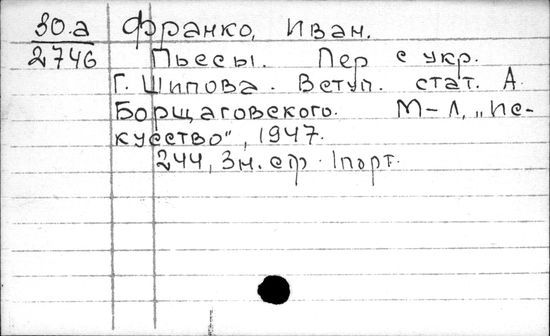 30.а Франко, Иван.
2746 Пьесы. Пер с укр.
Г. Шипова. Вступ. стат. А.
Борщаговского. М-Л, „Ис-
кусство", 1947.
244, 3н. стр. 1порт.